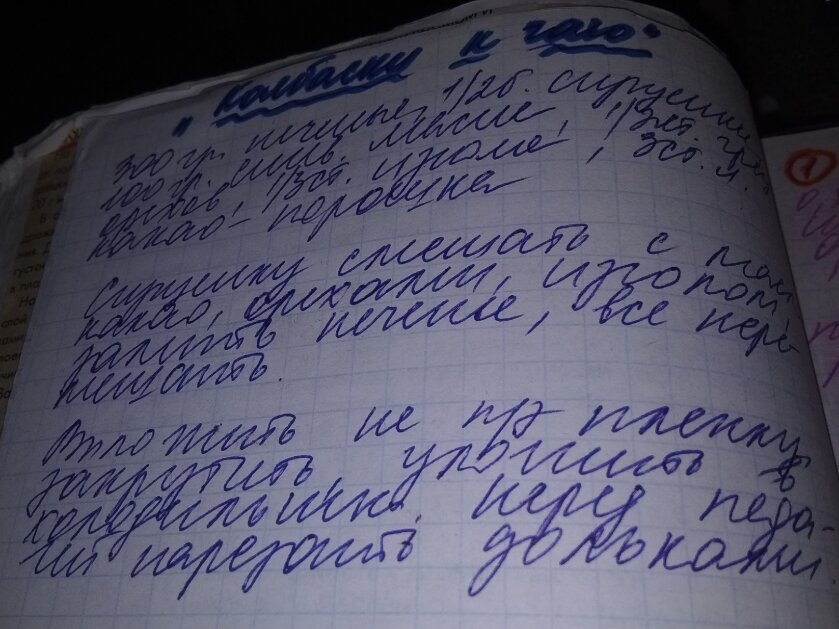 "Колбаски к чаю"
300 гр. печенье, 1/2 б. сгущенки
100 гр. слив. масло, 1/3 ст. гре
орехов, 1/3 ст. изюма, 3 ст. л.
какао-порошка
Сгущенку смешать с мас
какао, орехами, изюмом,
залить печенье, все пере-
мешать.
Вложить не пэ пленку
закрутить, уложить в
холодильник. перед пода-
чи нарезать дольками
1